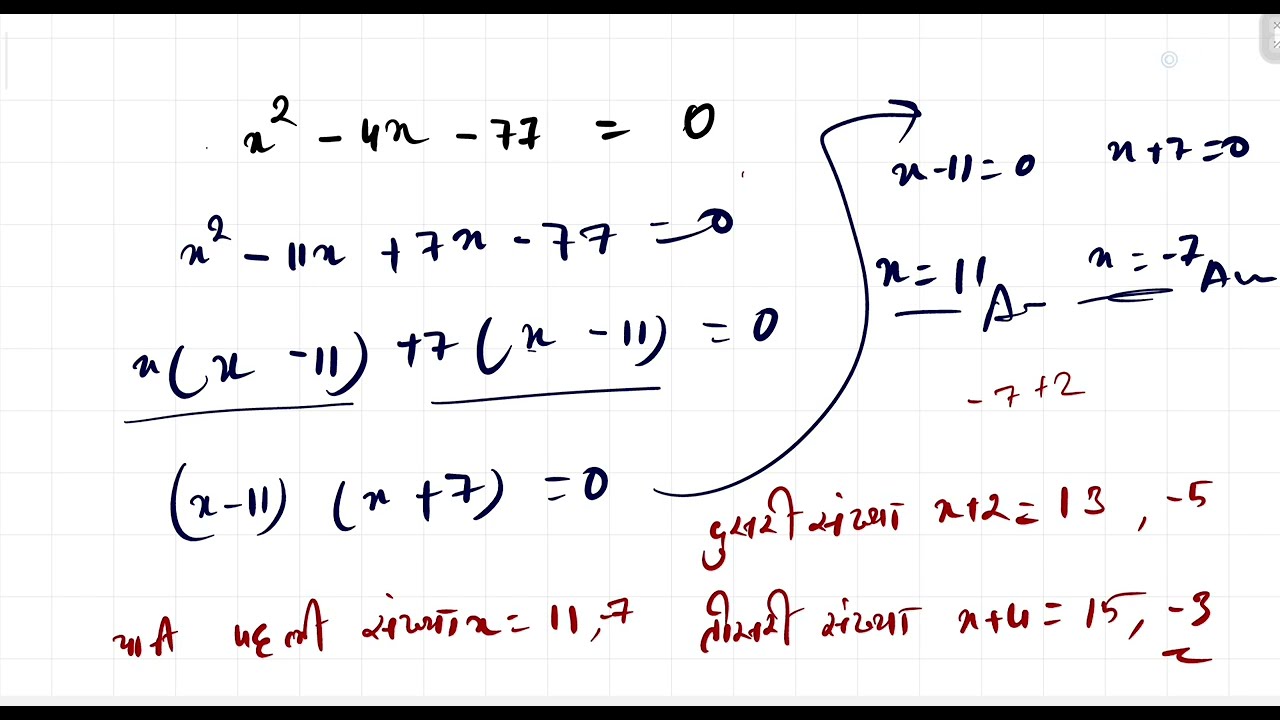 x² - 4x - 77 = 0
x² - 11x + 7x - 77 = 0
x(x - 11) + 7(x - 11) = 0
(x-11) (x+7) = 0
x-11=0 x+7=0
x=11 x=-7
-7+2
બીજી સંખ્યા x+2=13, -5
પહેલી સંખ્યા x=11,-7
ત્રીજી સંખ્યા x+4=15, -3